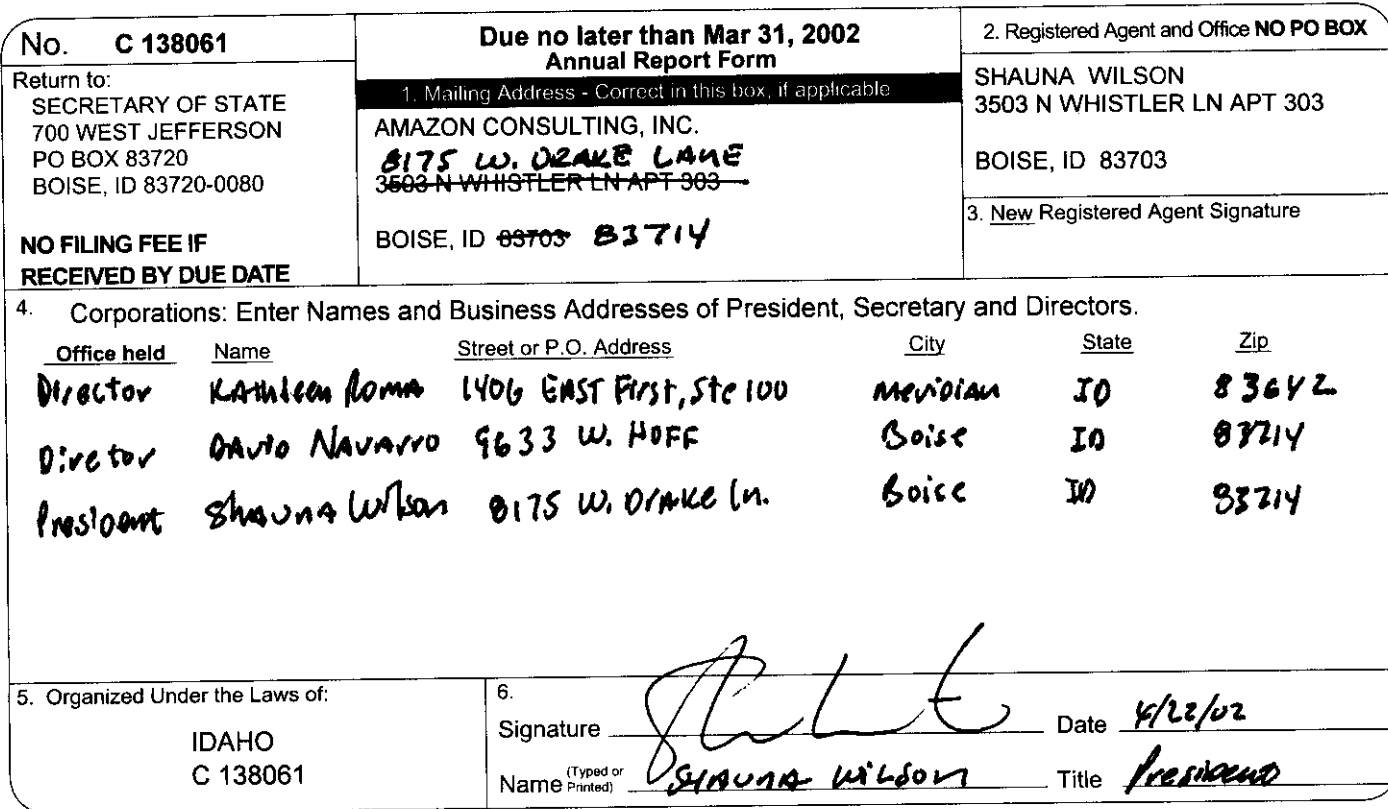 No. C 138061
Return to:
SECRETARY OF STATE
700 WEST JEFFERSON
PO BOX 83720
BOISE, ID 83720-0080
NO FILING FEE IF
RECEIVED BY DUE DATE
Due no later than Mar 31, 2002
Annual Report Form
1. Mailing Address - Correct in this box, if applicable
AMAZON CONSULTING, INC.
8175 W. DRAKE LANE
3503 N WHISTLER LN APT 303
BOISE, ID 83703 83714
2. Registered Agent and Office NO PO BOX
SHAUNA WILSON
3503 N WHISTLER LN APT 303
BOISE, ID 83703
3. New Registered Agent Signature
4. Corporations: Enter Names and Business Addresses of President, Secretary and Directors.
Office held Name Street or P.O. Address City State Zip
Director Kathleen Roma 1406 EAST First, Ste 100 Meridian ID 83642
Director David Navarro 9633 W. HOFF Boise ID 83714
President Shauna Wilson 8175 W. Drake Ln. Boise ID 83714
5. Organized Under the Laws of:
IDAHO
C 138061
6.
Signature Date 4/22/02
Name (Typed or Printed) SHAUNA WILSON Title President